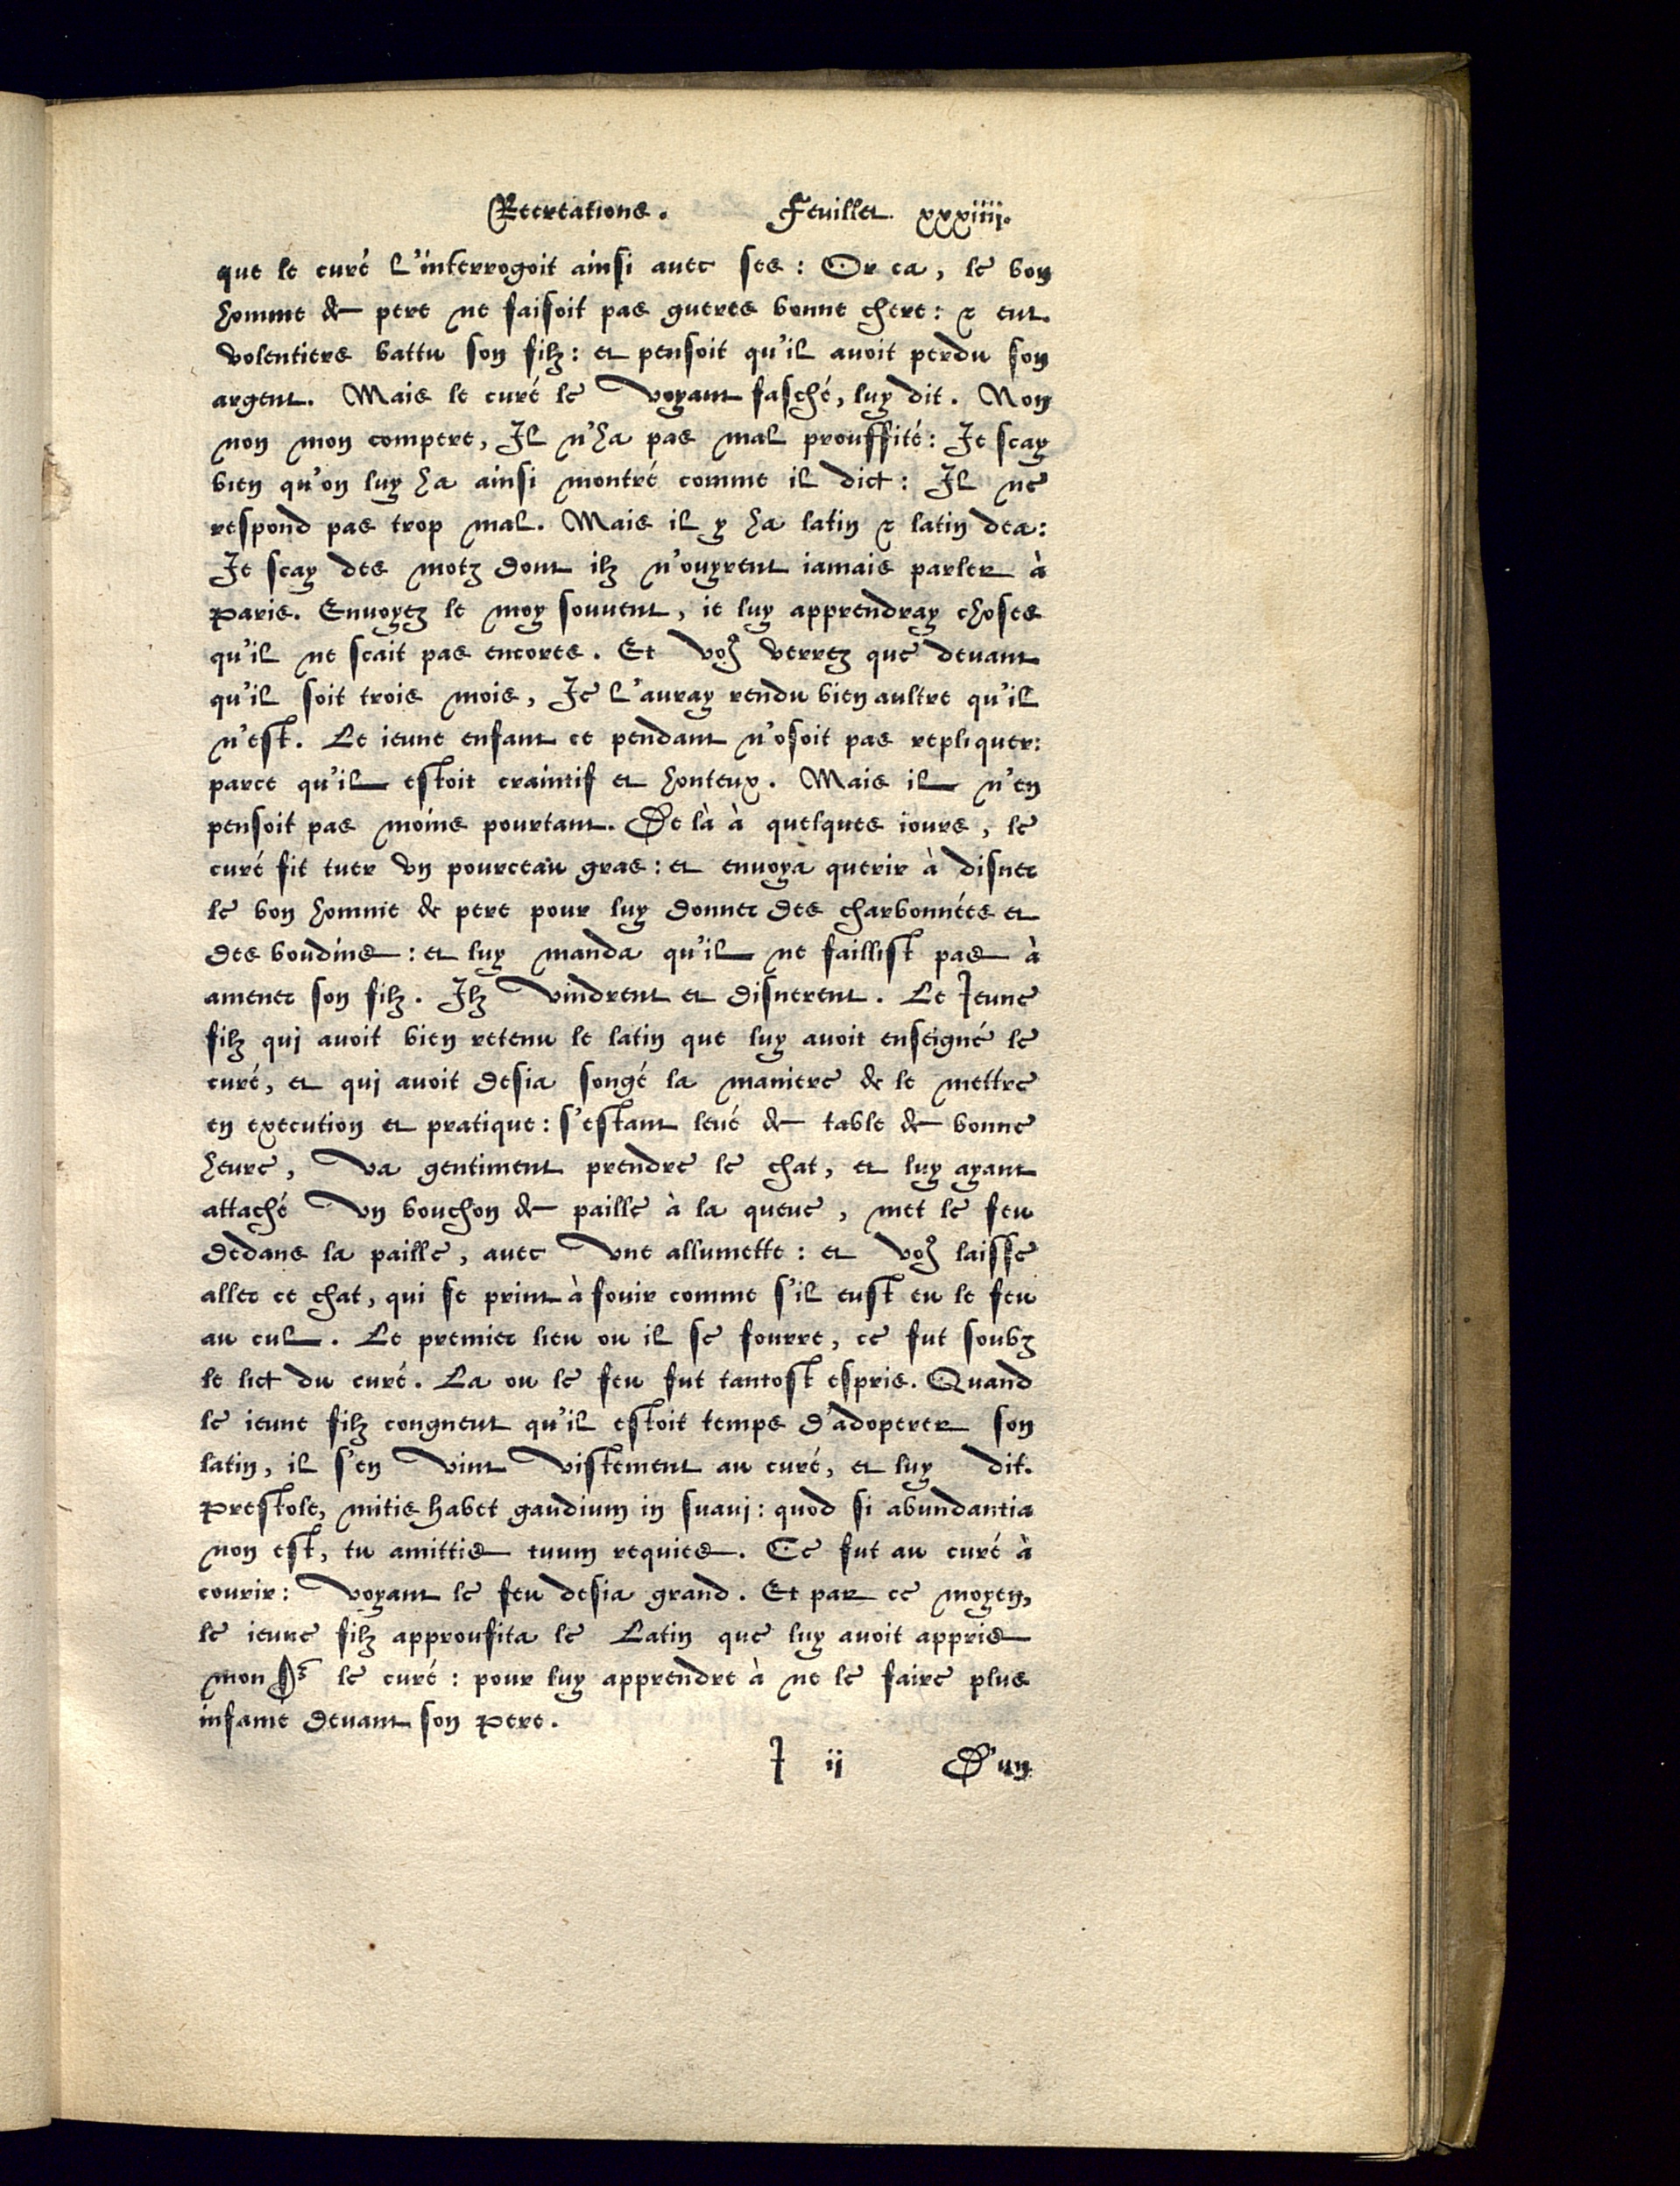 Recreations. Feuillet xxxiiii.
que le curé l'interrogoit ainsi auec ses: Or ca, le bon
homme de pere ne faisoit pas gueres bonne chere: & eut
volentiers battu son filz: et pensoit qu'il auoit perdu son
argent. Mais le curé le voyant fasché, luy dit. Non
non mon compere, Il n'ha pas mal prouffité: Ie scay
bien qu'on luy ha ainsi montré comme il dict: Il ne
respond pas trop mal. Mais il y ha latin & latin dea:
Ie scay des motz dont ilz n'ouyrent iamais parler à
Paris. Enuoyez le moy souuent, ie luy apprendray choses
qu'il ne scait pas encores. Et vous verrez que deuant
qu'il soit trois mois, Ie l'auray rendu bien aultre qu'il
n'est. Le ieune enfant ce pendant n'osoit pas repliquer:
parce qu'il estoit craintif et honteux. Mais il n'en
pensoit pas moins pourtant. De là à quelques iours, le
curé fit tuer vn pourceau gras: et enuoya querir à disner
le bon homme de pere pour luy donner des charbonnées et
des boudins: et luy manda qu'il ne faillist pas à
amener son filz. Ilz vindrent et disnerent. Le Ieune
filz qui auoit bien retenu le latin que luy auoit enseigné le
curé, et qui auoit desia songé la maniere de le mettre
en execution et pratique: s'estant leué de table de bonne
heure, va gentiment prendre le chat, et luy ayant
attaché vn bouchon de paille à la queue, met le feu
dedans la paille, auec vne allumette: et vous laisse
aller ce chat, qui se print à fouir comme s'il eust eu le feu
au cul. Le premier lieu ou il se fourre, ce fut soubz
le lict du curé. La ou le feu fut tantost espris. Quand
le ieune filz congneut qu'il estoit temps d'adoperer son
latin, il s'en vint vistement au curé, et luy dit.
Prestole, mitis habet gaudium in suaui: quod si abundantia
non est, tu amittis tuum requies. Ce fut au curé à
courir: voyant le feu desia grand. Et par ce moyen,
le ieune filz approufita le Latin que luy auoit appris
mon Sr le curé: pour luy apprendre à ne le faire plus
infame deuant son Pere.
I ij D'un